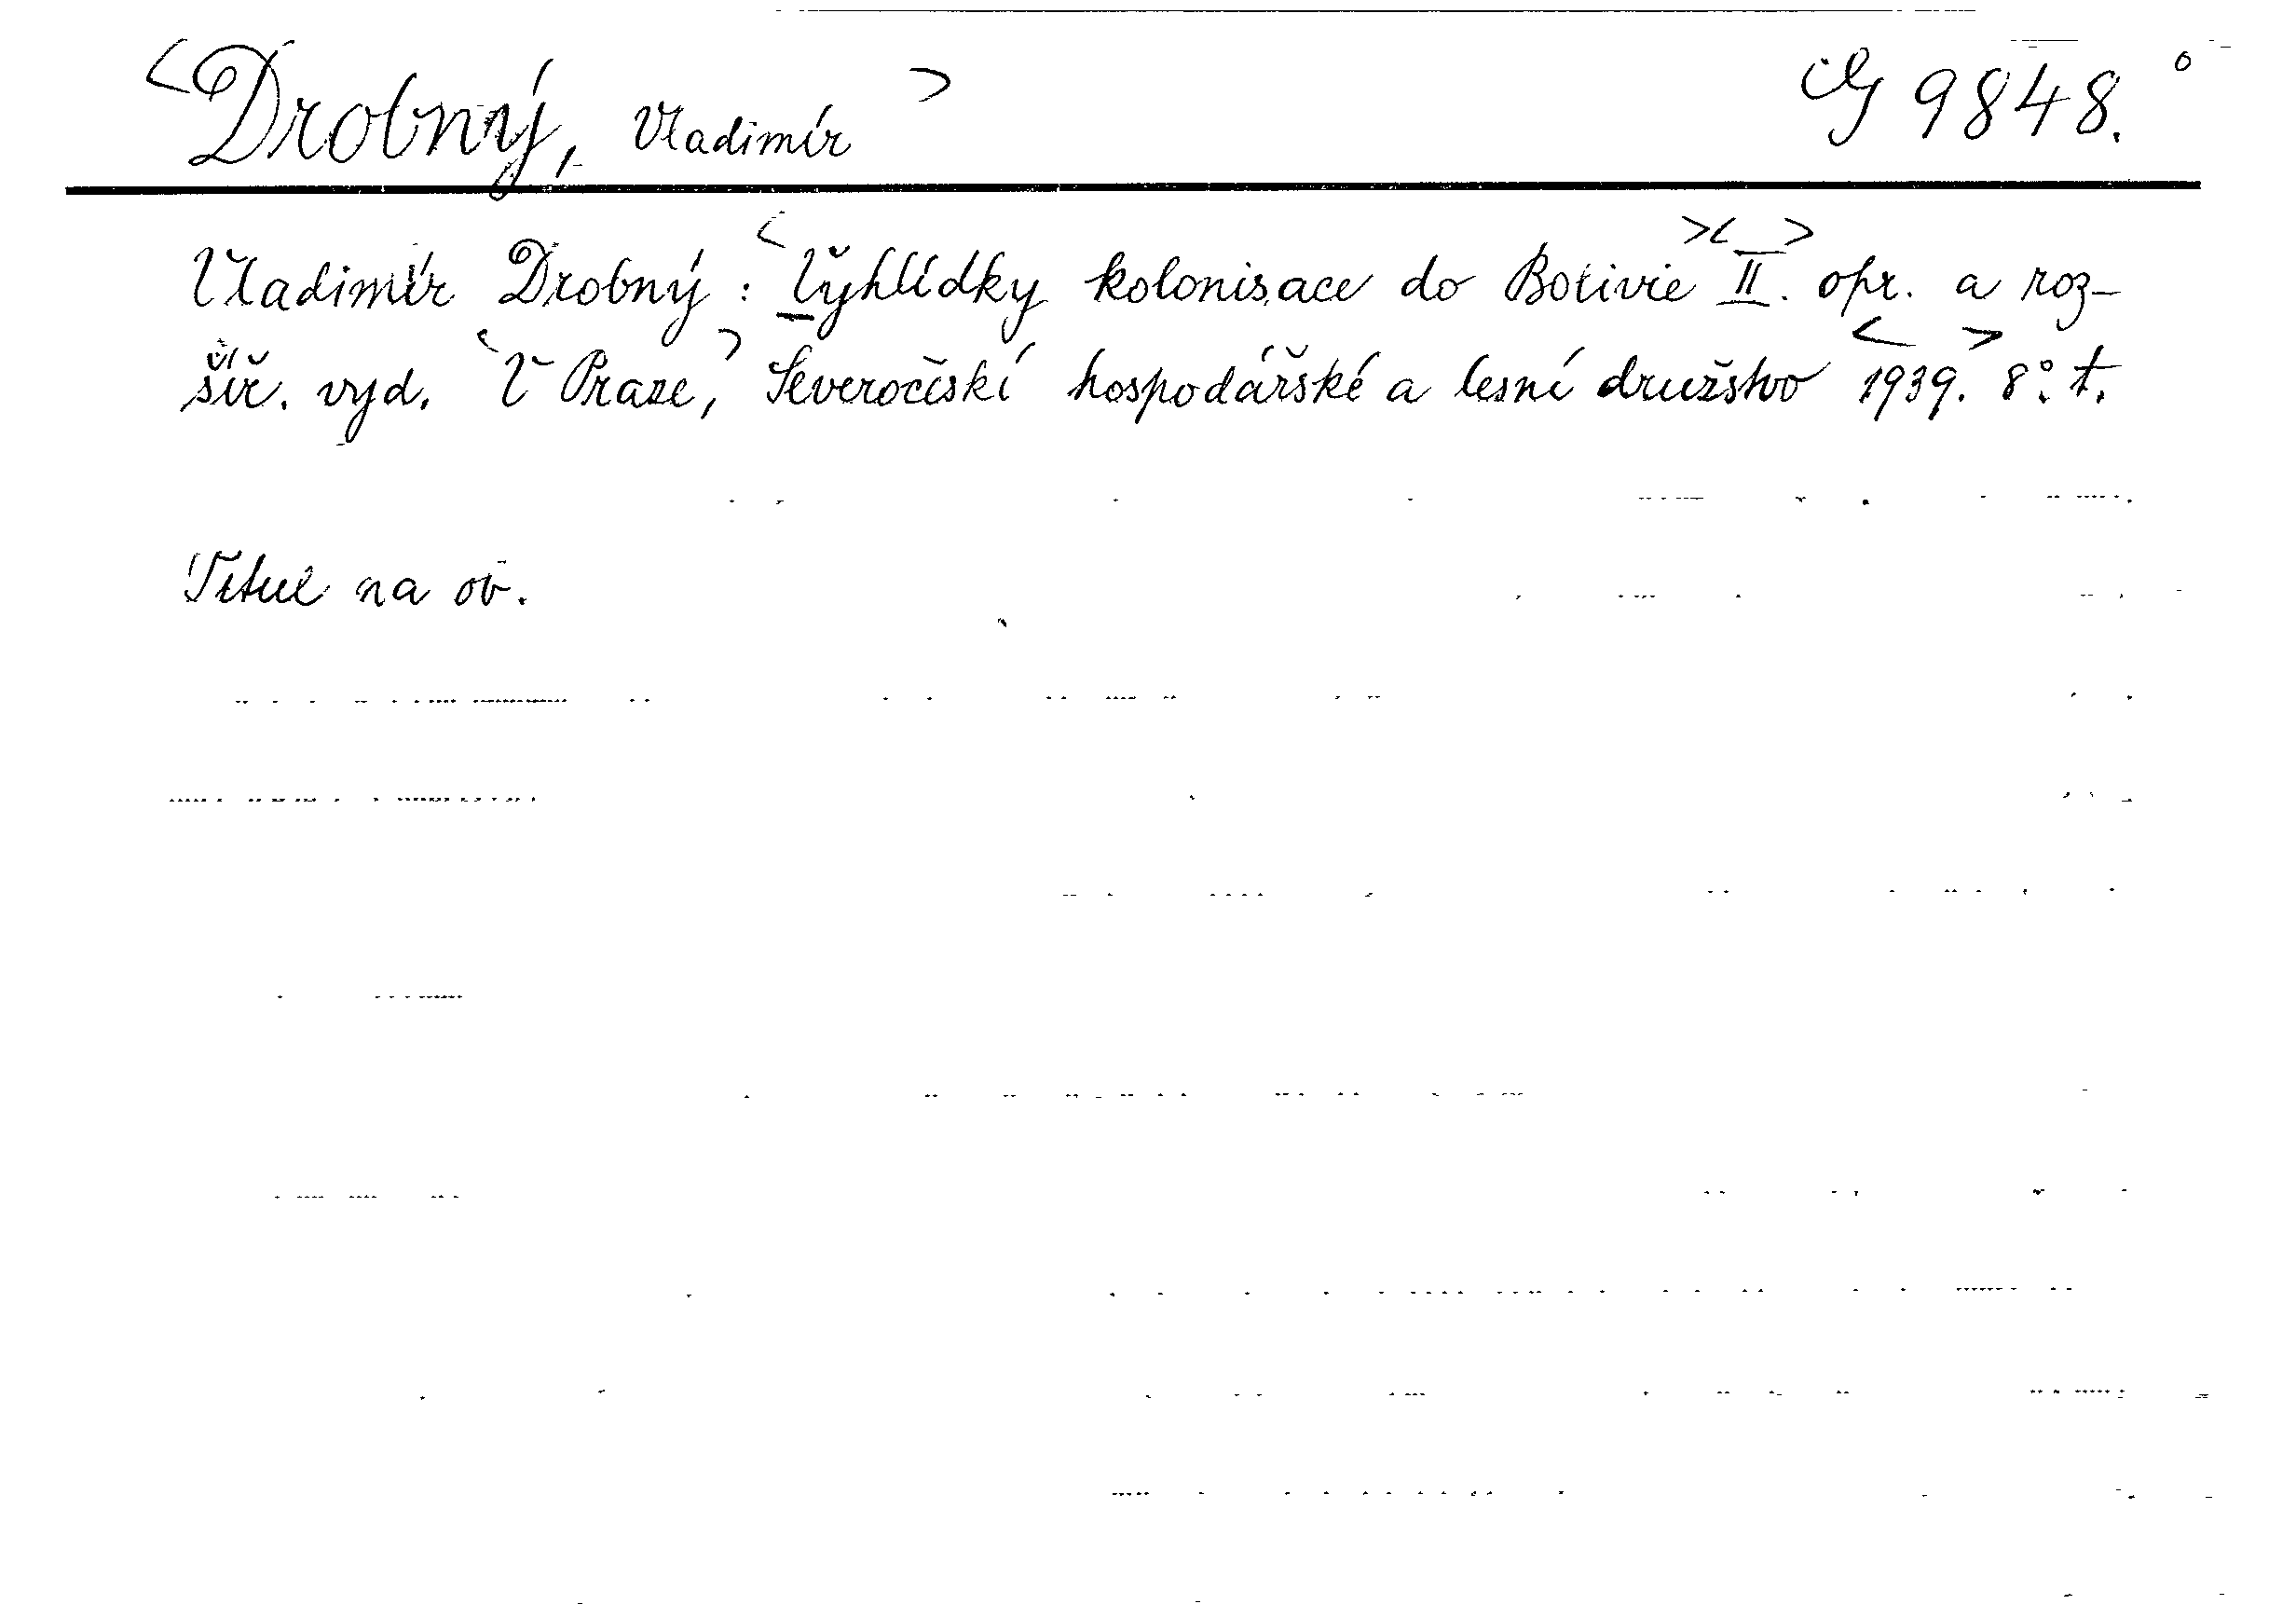 <Drobný, Vladimír> G 9848.°
Vladimír Drobný: <Vyhlídky kolonisace do Bolivie ><II.> opr. a roz-
šíř. vyd. <V Praze,> Severočeské hospodářské a lesní družstvo <1939.> 8°. t.
Titul na ob.